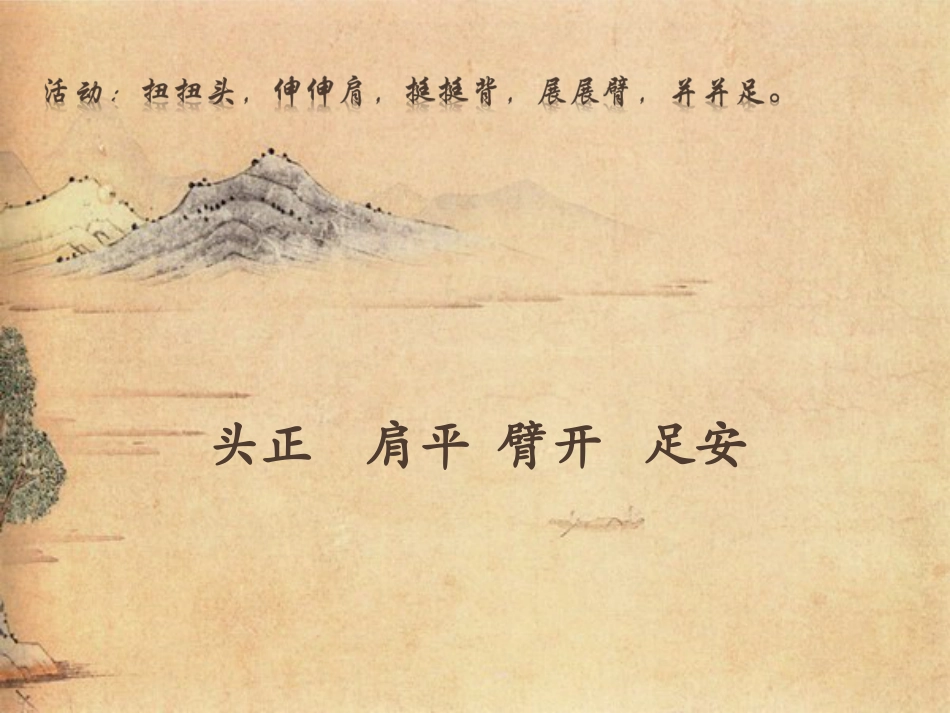 活动：扭扭头，伸伸肩，挺挺背，展展臂，并并足。
头正 肩平 臂开 足安